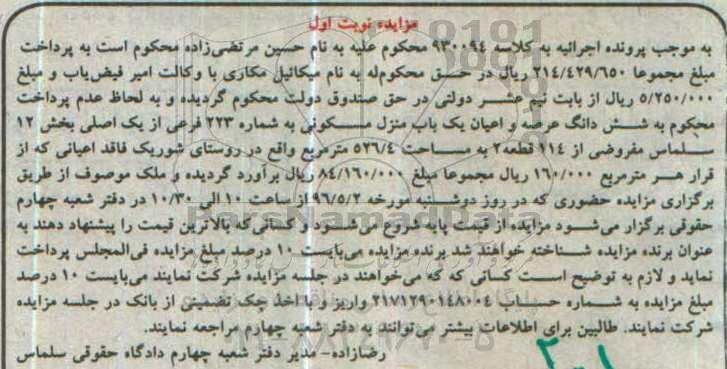 مزایده نوبت اول
به موجب پرونده اجرائیه به کلاسه ۹۳۰۰۹۴ محکوم علیه به نام حسین مرتضی‌زاده محکوم است به پرداخت
مبلغ مجموعا ۲۱۴/۴۲۹/۶۵۰ ریال در حسق محکوم‌له به نام میکائیل مکاری با وکالت امیر فیض‌یاب و مبلغ
۵/۲۵۰/۰۰۰ ریال از بابت نیم عشر دولتی در حق صندوق دولت محکوم گردیده و به لحاظ عدم پرداخت
محکوم به شش دانگ عرصه و اعیان یک باب منزل مسکونی به شماره ۲۲۳ فرعی از یک اصلی بخش ۱۲
سلماس مفروضی از ۱۱۴ قطعه۲ به مساحت ۵۲۶/۴ مترمربع واقع در روستای شوریک فاقد اعیانی که از
قرار هر مترمربع ۱۶۰/۰۰۰ ریال مجموعا مبلغ ۸۴/۱۶۰/۰۰۰ ریال برآورد گردیده و ملک موصوف از طریق
برگزاری مزایده حضوری که در روز دوشنبه مورخه ۹۶/۵/۲ از ساعت ۱۰ الی ۱۰/۳۰ در دفتر شعبه چهارم
حقوقی برگزار می‌شود مزایده از قیمت پایه شروع می‌شود و کسانی‌که بالاترین قیمت را پیشنهاد دهند به
عنوان برنده مزایده شناخته خواهند شد برنده مزایده می‌بایست ۱۰ درصد مبلغ مزایده فی‌المجلس پرداخت
نماید و لازم به توضیح است کسانی که که می‌خواهند در جلسه مزایده شرکت نمایند می‌بایست ۱۰ درصد
مبلغ مزایده به شماره حساب ۲۱۷۱۲۹۰۱۴۸۰۰۴ واریز و یااخذ چک تضمینی از بانک در جلسه مزایده
شرکت نمایند. طالبین برای اطلاعات بیشتر می‌توانند به دفتر شعبه چهارم مراجعه نمایند.
رضازاده- مدیر دفتر شعبه چهارم دادگاه حقوقی سلماس
ParsNamadData